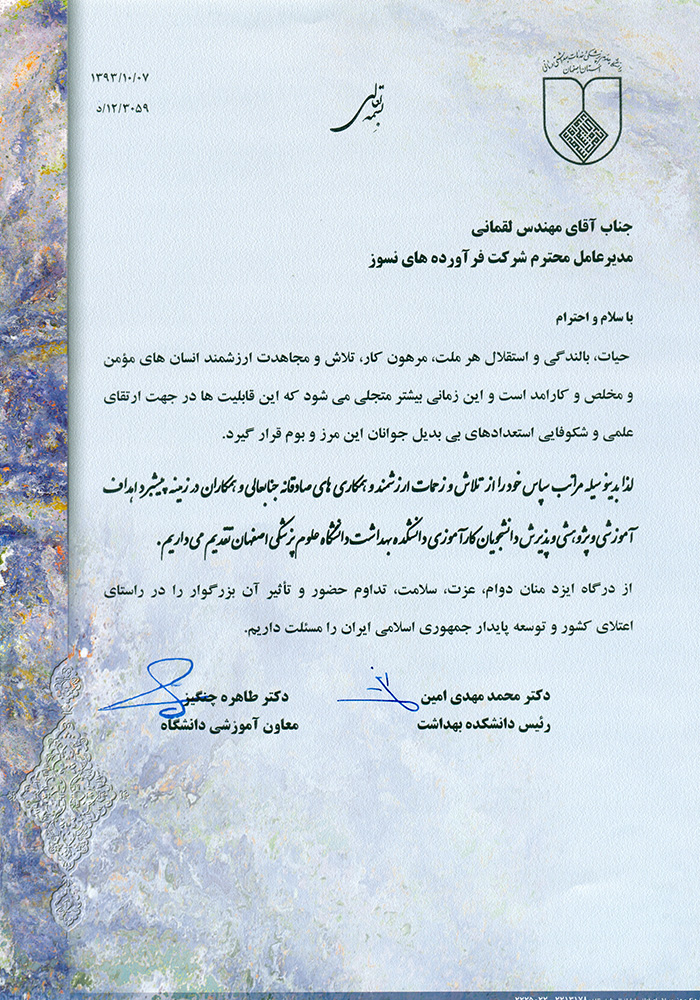 دانشگاه علوم پزشکی و خدمات بهداشتی درمانی
استان اصفهان
بسمه تعالی
۱۳۹۳/۱۰/۰۷
۱۲/۳۰۵۹/د
جناب آقای مهندس لقمانی
مدیرعامل محترم شرکت فرآورده های نسوز
با سلام و احترام
حیات، بالندگی و استقلال هر ملت، مرهون کار، تلاش و مجاهدت ارزشمند انسان های مؤمن
و مخلص و کارامد است و این زمانی بیشتر متجلی می شود که این قابلیت ها در جهت ارتقای
علمی و شکوفایی استعدادهای بی بدیل جوانان این مرز و بوم قرار گیرد.
لذا بدینوسیله مراتب سپاس خود را از تلاش و زحمات ارزشمند و همکاری های صادقانه جنابعالی و همکاران در زمینه پیشبرد اهداف
آموزشی و پژوهشی و پذیرش دانشجویان کارآموزی دانشکده بهداشت دانشگاه علوم پزشکی اصفهان تقدیم می داریم.
از درگاه ایزد منان دوام، عزت، سلامت، تداوم حضور و تأثیر آن بزرگوار را در راستای
اعتلای کشور و توسعه پایدار جمهوری اسلامی ایران را مسئلت داریم.
دکتر محمد مهدی امین
رئیس دانشکده بهداشت
دکتر طاهره چنگیز
معاون آموزشی دانشگاه